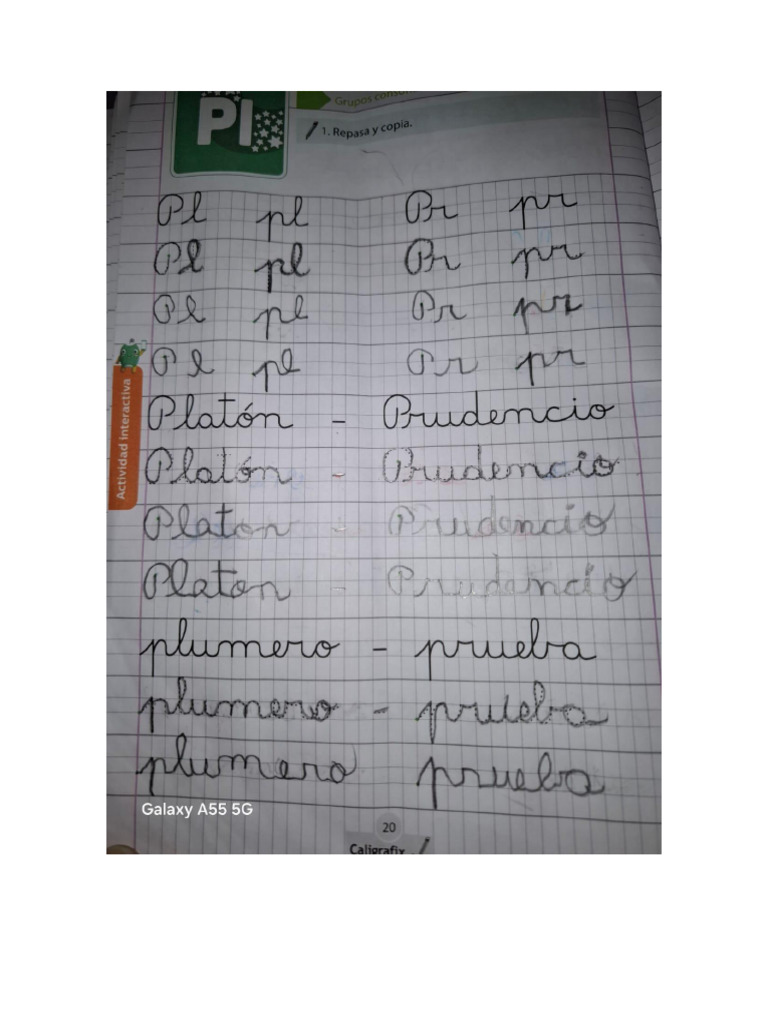 Pl
Grupos
1. Repasa y copia.
Pl pl Pr pr
Pl pl Pr pr
Pl pl Pr pr
Pl pl Pr pr
Actividad interactiva
Platón - Prudencio
Platón - Prudencio
Platon - Prudencio
Platon - Prudencio
plumero - prueba
plumero - prueba
plumero prueba
Galaxy A55 5G
20
Caligrafix